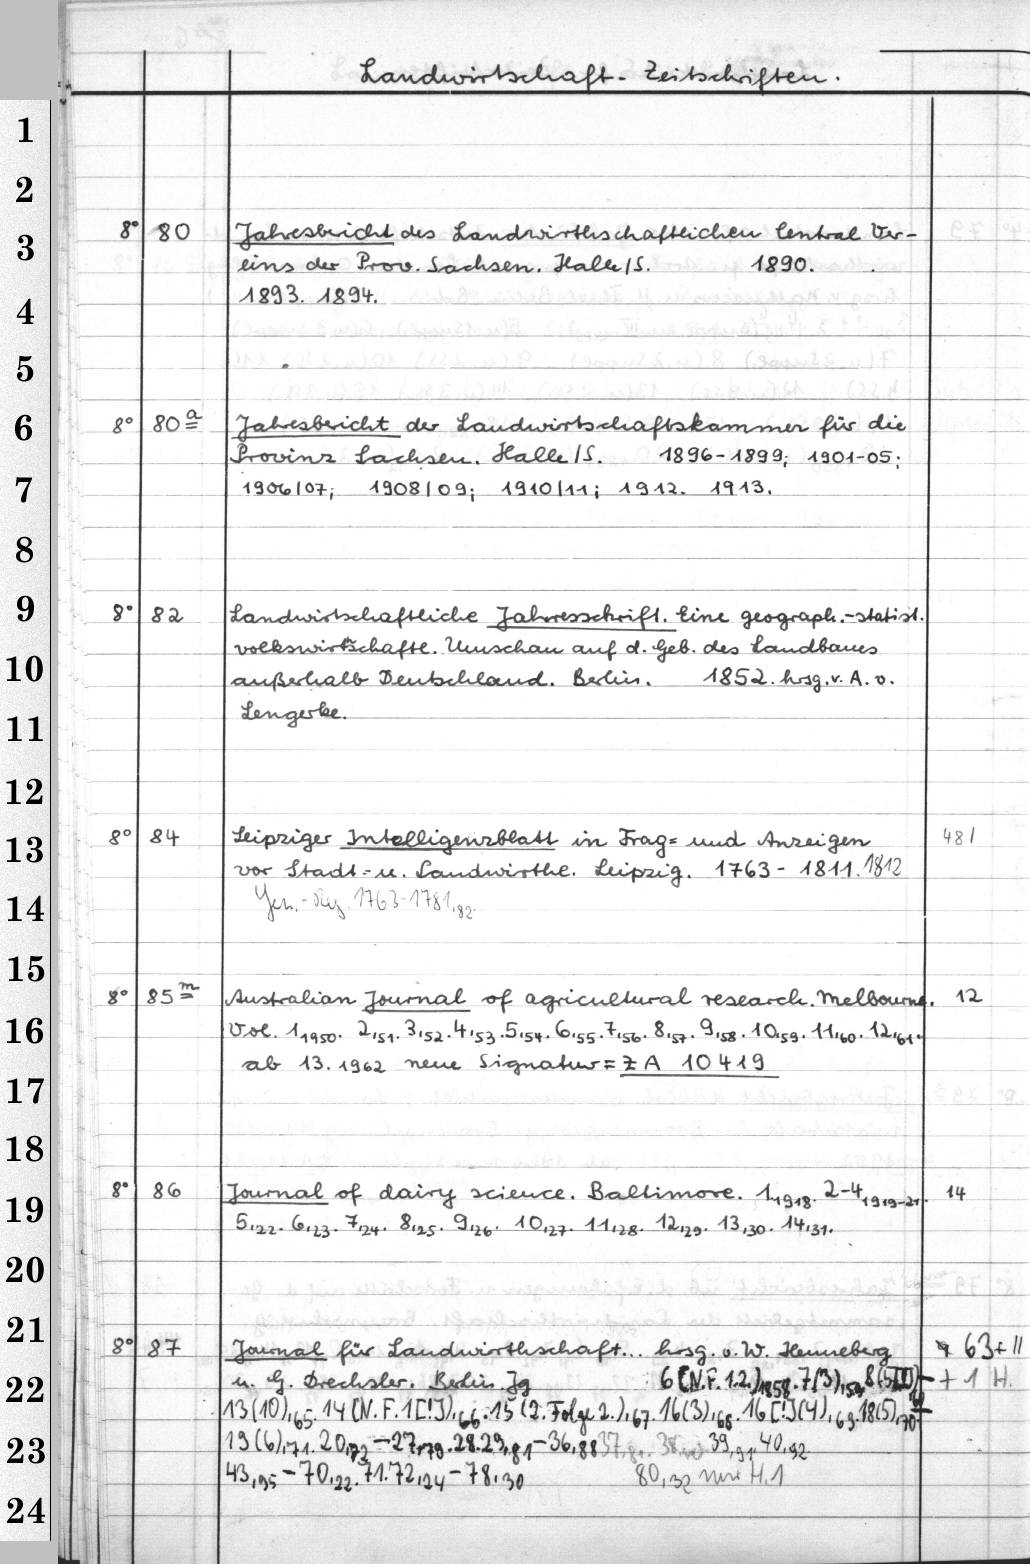 Landwirtschaft - Zeitschriften.
1
2
3
8° 80 Jahresbericht des Landwirthschaftlichen Central Ver-
eins der Prov. Sachsen. Halle/S. 1890.
4
1893. 1894.
5
6
8° 80 a Jahresbericht der Landwirtschaftskammer für die
Provinz Sachsen. Halle/S. 1896-1899; 1901-05;
7
1906/07; 1908/09; 1910/11; 1912. 1913.
8
9
8° 82 Landwirtschaftliche Jahresschrift. Eine geograph.-statist.
volkswirtschaftl. Umschau auf d. Geb. des Landbaues
10
außerhalb Deutschland. Berlin. 1852. hrsg. v. A. v.
11
Lengerke.
12
13
8° 84 Leipziger Intelligenzblatt in Frag= und Anzeigen 481
vor Stadt= u. Landwirthe. Leipzig. 1763 - 1811. 1812
14
1763-1781,82.
15
8° 85 m Australian Journal of agricultural research. Melbourne. 12
16
Vol. 1,1950. 2,51. 3,52. 4,53. 5,54. 6,55. 7,56. 8,57. 9,58. 10,59. 11,60. 12,61.
17
ab 13.1962 neue Signatur = Z A 10419
18
19
8° 86 Journal of dairy science. Baltimore. 1,1918. 2-4,1919-21. 14
5,22. 6,23. 7,24. 8,25. 9,26. 10,27. 11,28. 12,29. 13,30. 14,31.
20
21
8° 87 Journal für Landwirthschaft... hrsg. v. W. Henneberg 63+11
22
u. G. Drechsler. Berlin. Jg 6(N.F. 1.2),1858. 7(3),159. 8(5III) + 1 H.
13(10),65. 14(N.F. 1[!]),66. 15(2. Folge 2.),67. 16(3),68. 16[!](4),69. 18(5),70
23
19(6),71. 20,72-27,79. 28. 29,81-36,88 39,91. 40,92
43,95-70,22. 71. 72,24-78,30 80,32 nur H.1
24